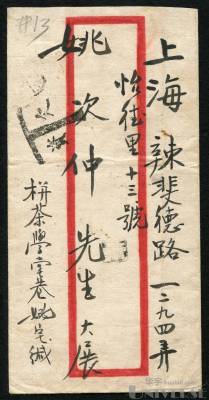 上海 辣斐德路 一二九四弄
怡德里 十三號
姚次仲 先生 大展
栟茶學堂巷姚宅緘
#13
華宇